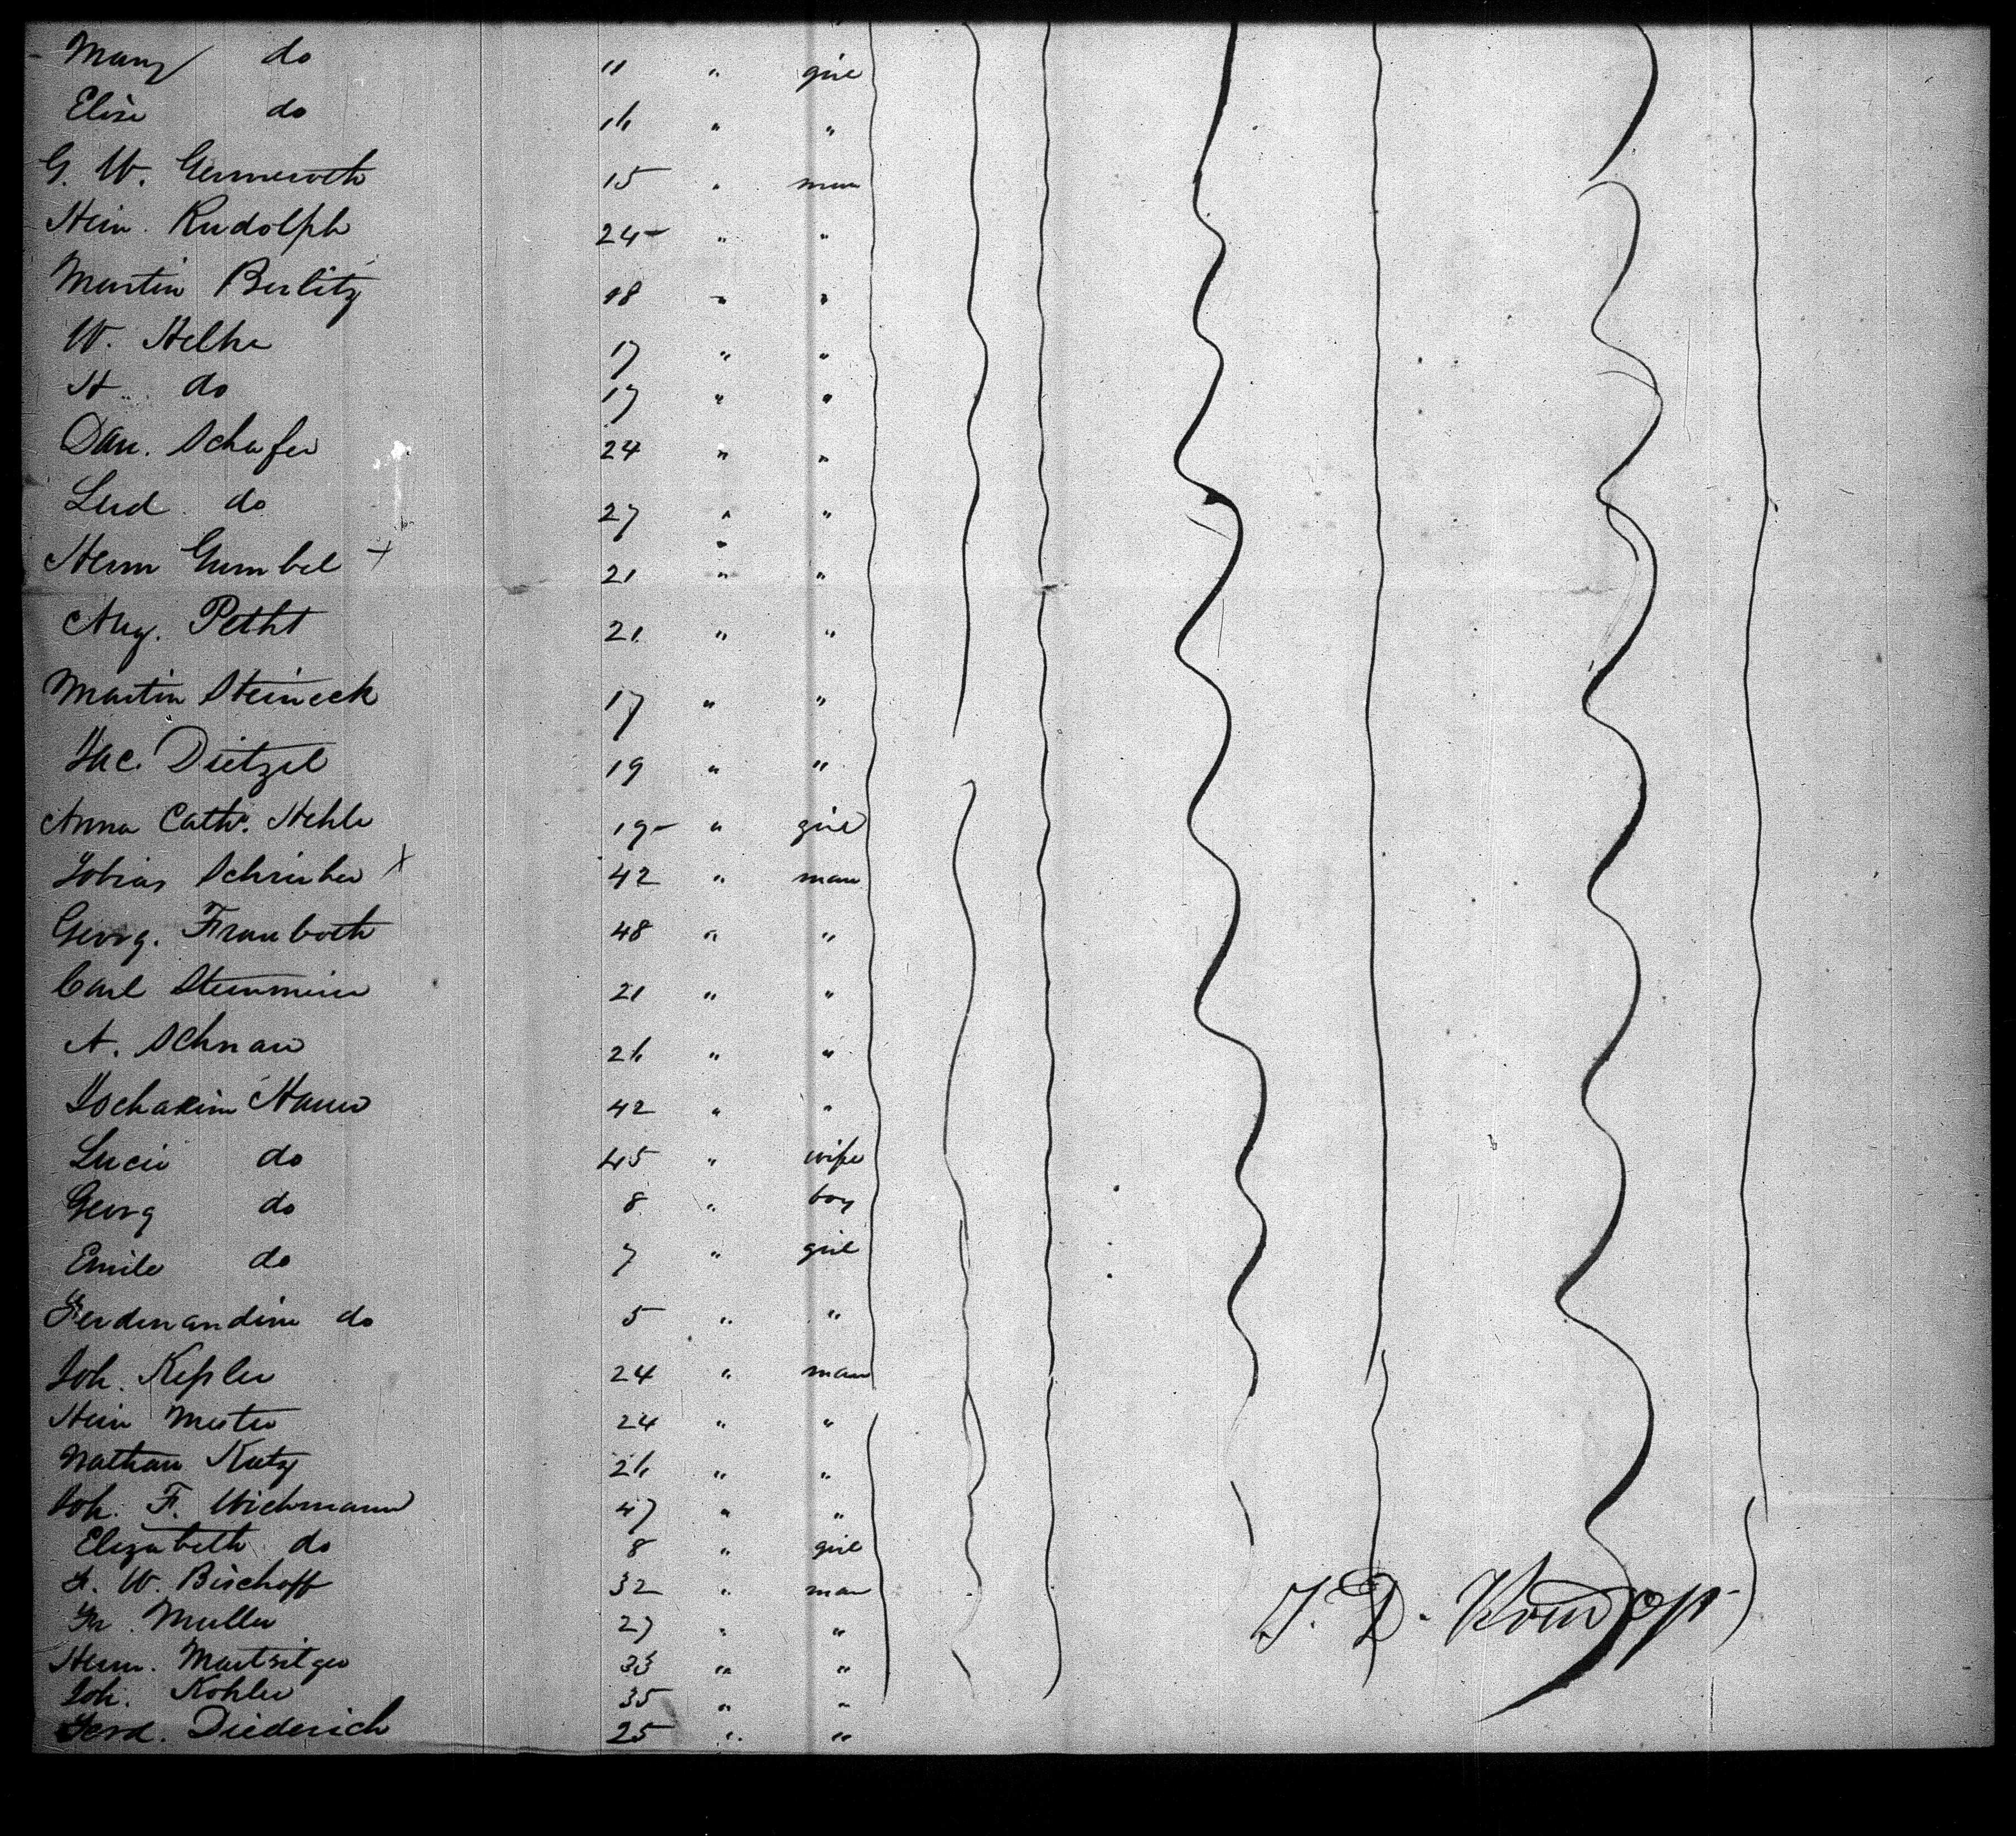 Mary do 11 " girl
Elise do 16 " "
G. W. Germeroth 15 " man
Hein. Rudolph 24 " "
Martin Berlitz 18 " "
W. Helke 17 " "
H. do 17 " "
Dan. Schafer 24 " "
do 27 " "
Herm Gumbel + 21 " "
Aug. Petht 21 " "
Martin Steineck 17 " "
Jac. Dietzel 19 " "
Anna Cath. Hehle 19 " girl
Tobias Schrieber x 42 " man
Georg. Frauboth 48 " "
Carl Stemmeier 21 " "
A. Schnau 26 " "
Jochakim 42 " "
Lucie do 45 " wife
Georg do 8 " boy
Emile do 7 " girl
Ferdinandine do 5 " "
Joh. Kessler 24 " man
Hein Mester 24 " "
Nathan Katz 26 " "
Joh. F. Wichmann 47 " "
Elizabeth do 8 " girl
F. W. Bischoff 32 " man
Fr. Muller 27 " "
Herm. 33 " "
Joh. Kohler 35 " "
Ferd. Diederich 25 " "
J. D.